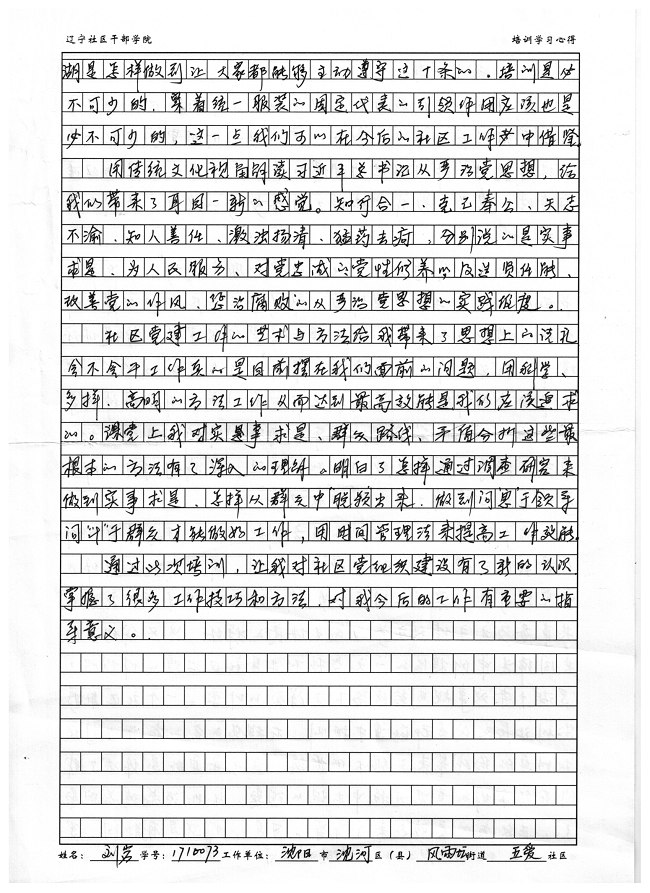 辽宁社区干部学院 培训学习心得
湖是怎样做到让大家都能够主动遵守这十条的。培训是必
不可少的,穿着统一服装的固定代表的引领作用应该也是
必不可少的,这一点我们可以在今后的社区工作中借鉴。
用传统文化视角解读习近平总书记从严治党思想,给
我们带来了耳目一新的感觉。知行合一、克己奉公、矢志
不渝、知人善任、激浊扬清、猛药去疴,分别说的是实事
求是、为人民服务、对党忠诚的党性修养以及选贤任能、
改善党的作风、惩治腐败的从严治党思想的实践极度。
社区党建工作的艺术与方法给我带来了思想上的洗礼
会不会干工作真的是目前摆在我们面前的问题,用科学、
多样、高明的方法工作从而达到最高效能是我们应该追求
的。课堂上我对实事求是、群众路线、矛盾分析这些最
根本的方法有了深入的理解。明白了怎样通过调查研究来
做到实事求是,怎样从群众中"脱颖"出来,做到问思于领导
问"计"于群众才能做好工作,用时间管理法来提高工作效能。
通过此次培训,让我对社区党组织建设有了新的认识
掌握了很多工作技巧和方法,对我今后的工作有重要的指
导意义。
姓名:刘岩 学号:1710073 工作单位:沈阳市沈河区(县)风雨坛街道 五爱社区